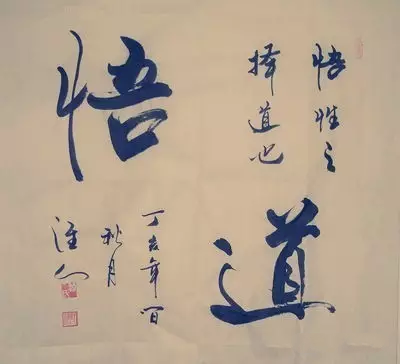 悟性之
择道也
悟
道
丁亥年
秋月